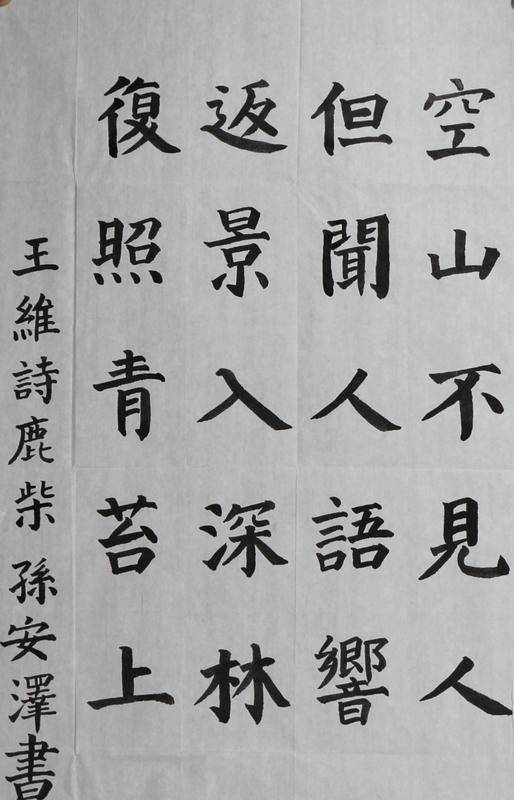 空山不見人
但聞人語響
返景入深林
復照青苔上
王維詩鹿柴孫安澤書